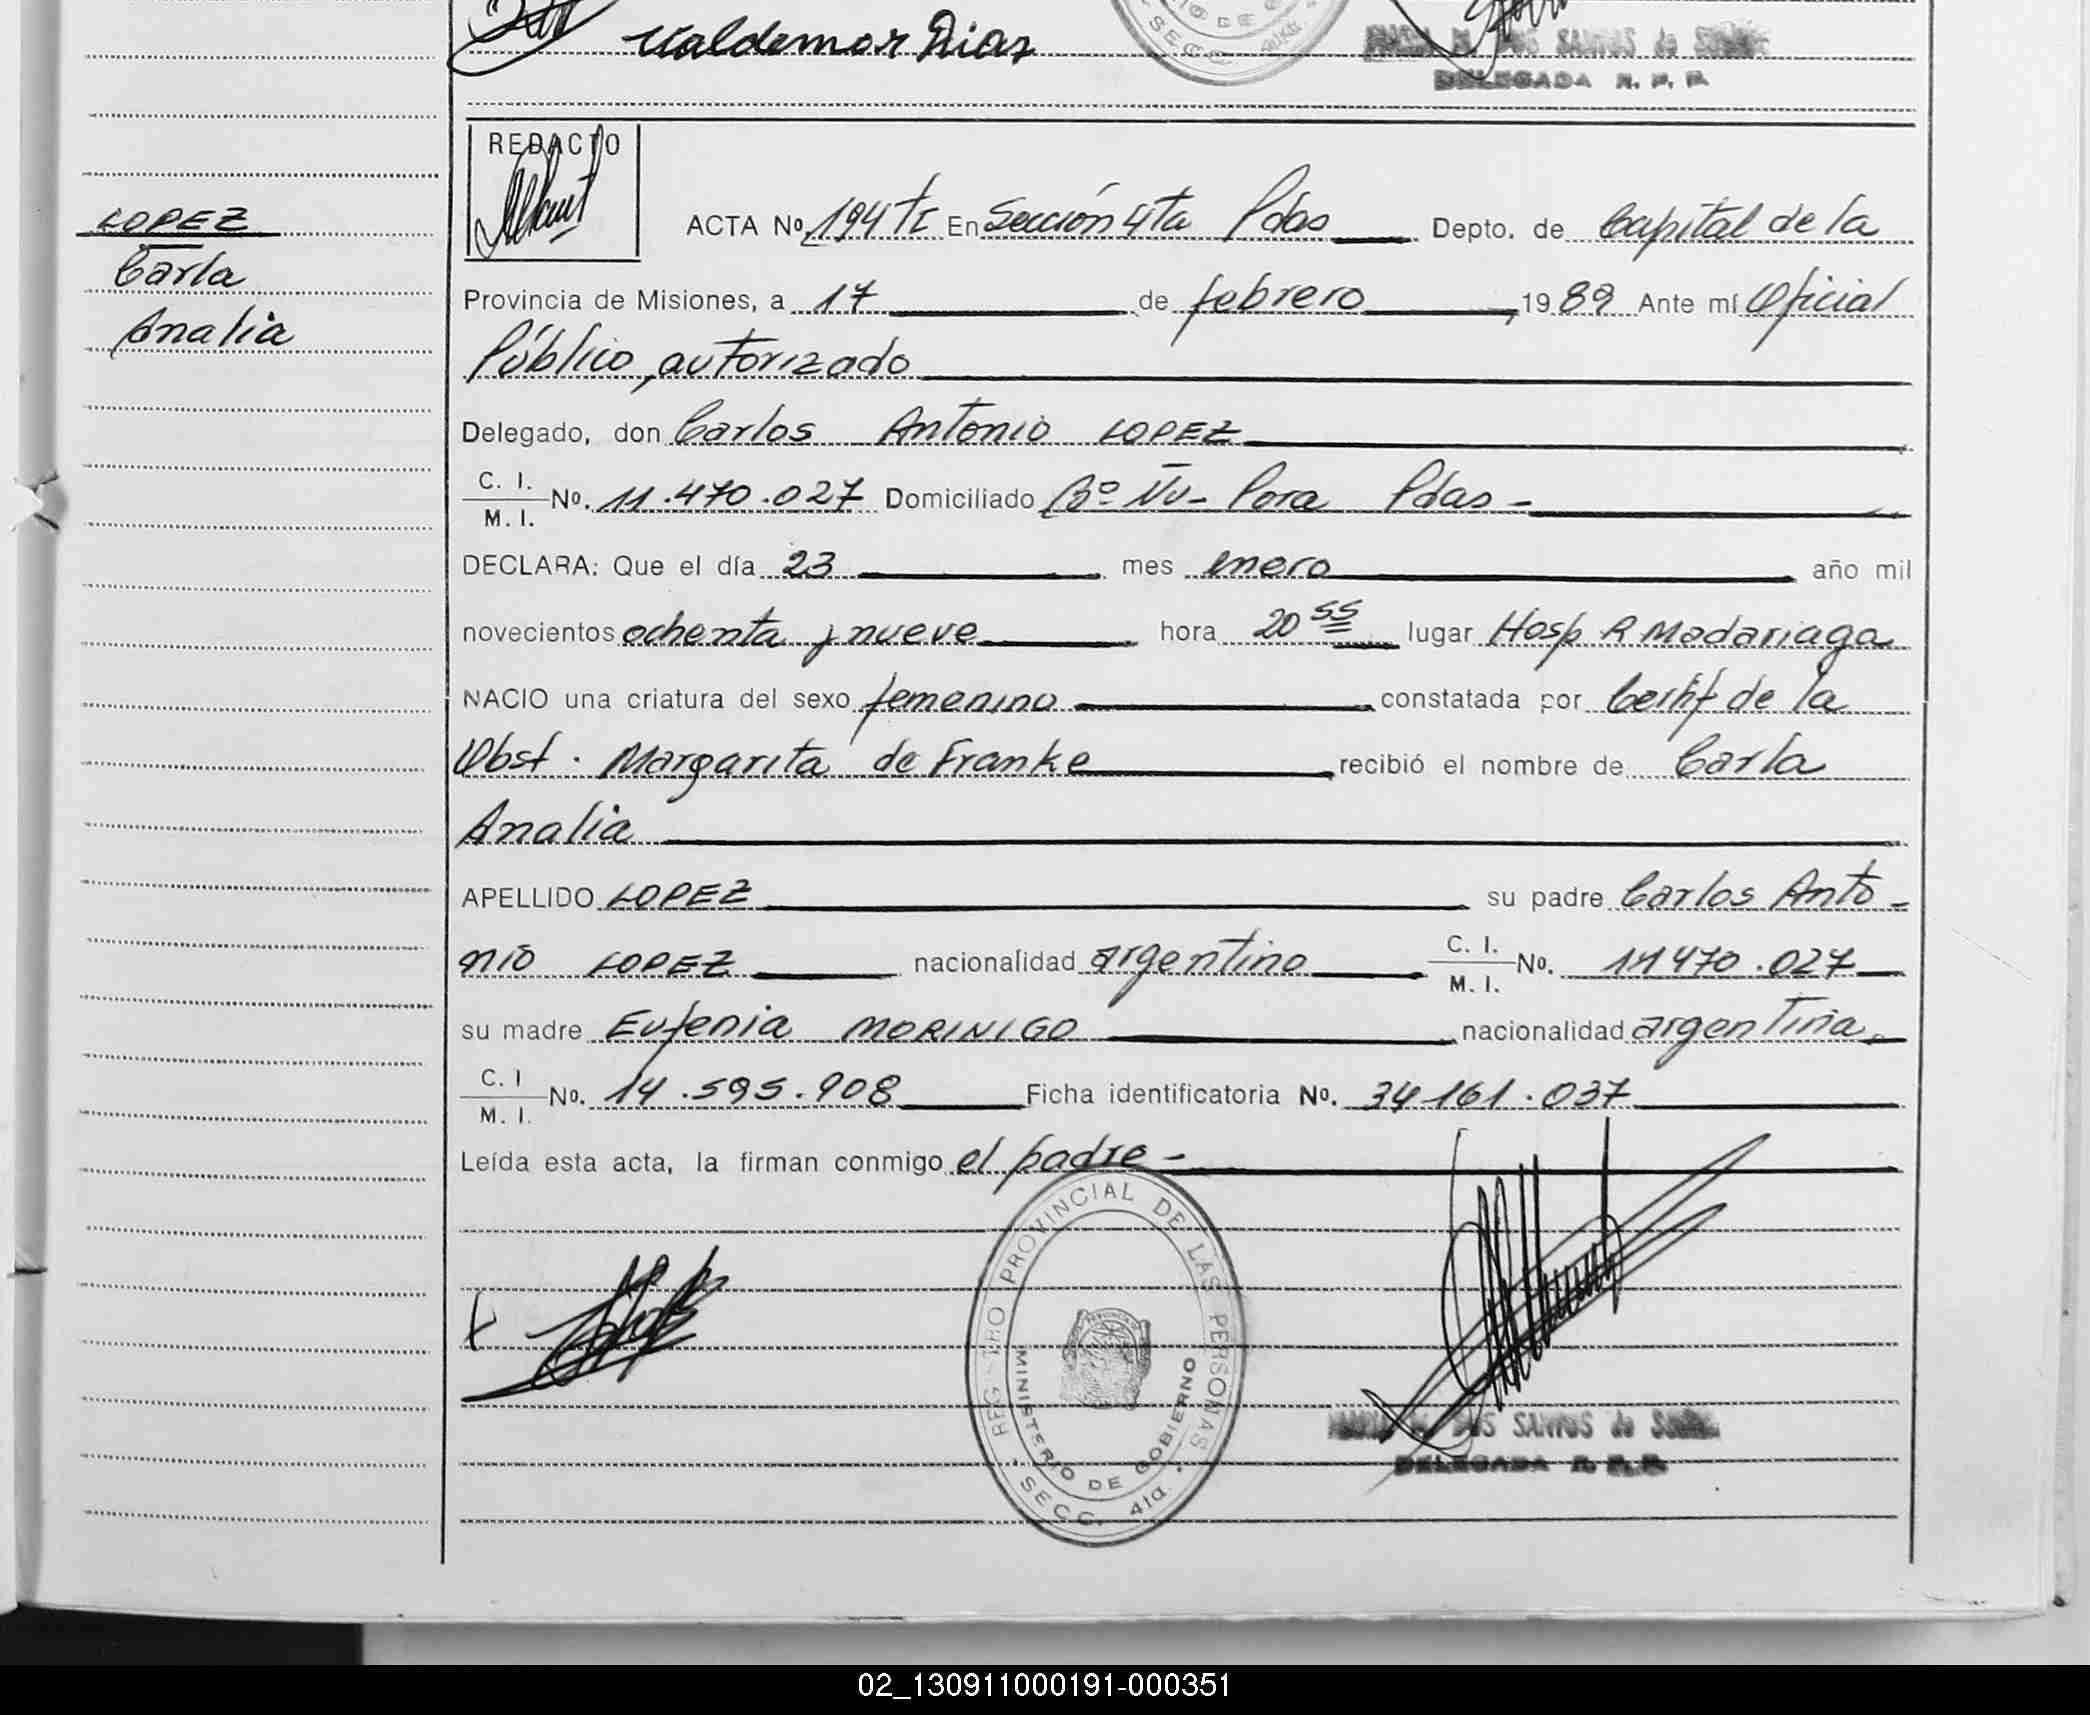 Valdemor Dias
DELEGADA R. P. P.
REDACTO
ACTA Nº 194 tI En Sección 4ta Pdas Depto. de Capital de la
LOPEZ
Carla
Analia
Provincia de Misiones, a 17 de febrero, 1989 Ante mí Oficial
Público, autorizado
Delegado, don Carlos Antonio LOPEZ
C. I.
M. I. Nº. 11.470.027 Domiciliado Bº Ñu-Pora Pdas-
DECLARA: Que el día 23 mes enero año mil
novecientos ochenta y nueve hora 20 55 lugar Hosp R Madariaga
NACIO una criatura del sexo femenino constatada por Certif de la
Obst. Margarita de Franke recibió el nombre de Carla
Analia
APELLIDO LOPEZ su padre Carlos Anto-
nio LOPEZ nacionalidad argentino C. I.
M. I. Nº. 11470.027
su madre Eufenia MORINIGO nacionalidad argentina
C. I
M. I. Nº. 14.595.908 Ficha identificatoria Nº. 34161.037
Leída esta acta, la firman conmigo el padre-
REGISTRO PROVINCIAL DE LAS PERSONAS
MINISTERIO DE GOBIERNO
SECC. 4ta.
DOS SANTOS de
DELEGADA R. P. P.
02_130911000191-000351